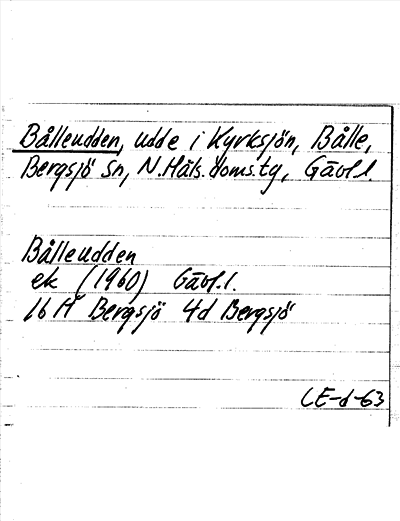 Bålleudden, udde i Kyrksjön, Bålle,
Bergsjö sn, N.Häls.doms.tg, Gävl.l.
Bålleudden
ek (1960) Gävl.l.
16 H Bergsjö 4d Bergsjö
CE-d-63